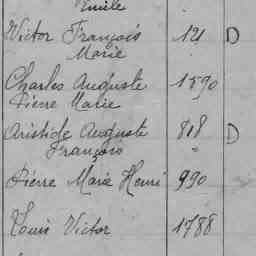 Emile
Victor François 121 D
Marie
Charles Auguste 1590
Pierre Marie
Aristide Auguste 818 D
François
Pierre Marie Henri 990
Louis Victor 1788